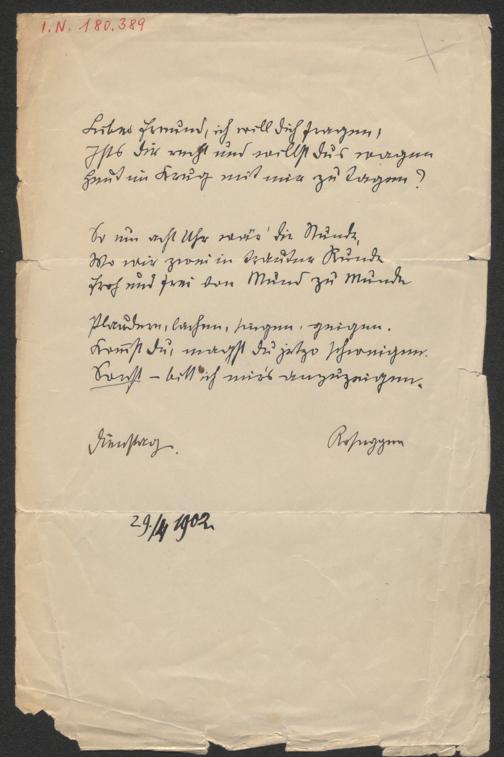 I.N. 180.389
Lieber Freund, ich will dich fragen,
Ists dir recht und willst dus wagen
Heut im Krug mit mir zu tagen?
So um acht Uhr wär' die Stunde,
Wo wir zwei in trauter Runde
Froh und frei von Mund zu Munde
Plaudern, lachen, singen, geigen.
Kommst du, magst du jetzo schweigen.
Sonst – bitt ich mir's anzuzeigen.
Dienstag. Rosegger
29/4 1902